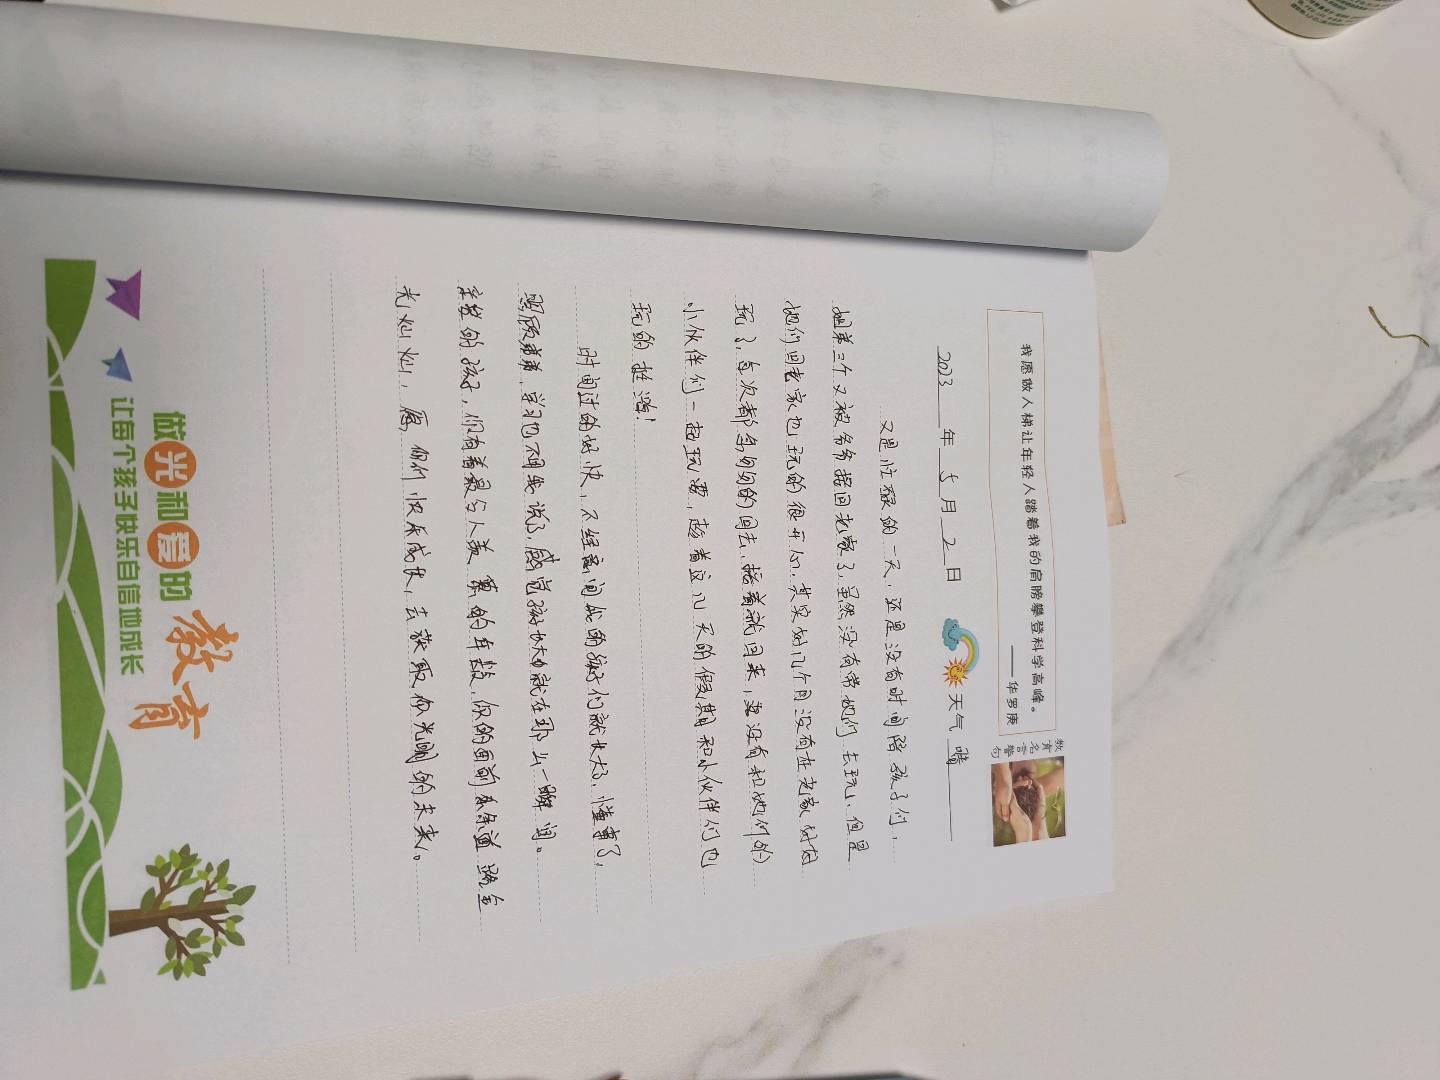 我愿做人梯让年轻人踏着我的肩膀攀登科学高峰。
——华罗庚
教育名言警句
2023年5月2日 天气 晴
又是忙碌的一天，还是没有时间陪孩子们，
姐弟三个又被爷爷接回老家了，虽然没有带她们去玩，但是
她们回老家也玩的很开心，其实好几个月没有在老家好好
玩了，每次都匆匆匆的回去，接着就回来，再没有和她们的
小伙伴们一起玩耍，趁着这几天的假期和小伙伴们也
玩的挺嗨！
时间过的好快，不经意间我的孩子们就长大了，懂事了，
照顾弟弟，学习也不用我说了，感觉孩子长大就在那么一瞬间。
亲爱的孩子，你有着最令人羡慕的年龄，你的面前条条道路金
光灿灿，愿你们快乐成长，去获取你光明的未来。
做光和爱的教育
让每个孩子快乐自信地成长